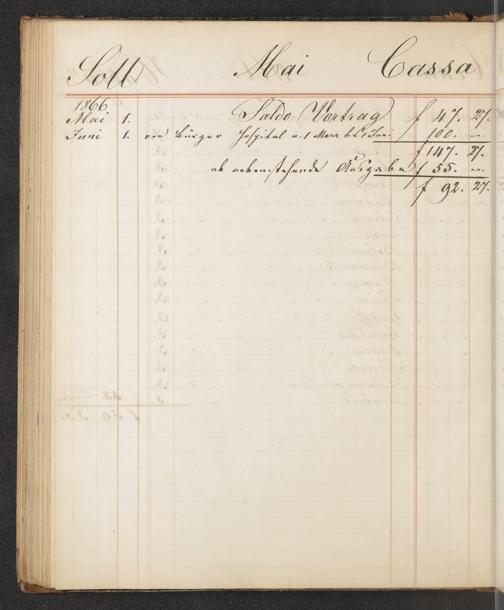 Soll Mai Cassa
1866
Mai 1. Saldo Vortrag f 47. 27.
Juni 1. von Bürger Hospital v. 1 März bis 1 Juni 100. –
f 147. 27.
ab nebenstehende Ausgabe f 55. –
f 92. 27.